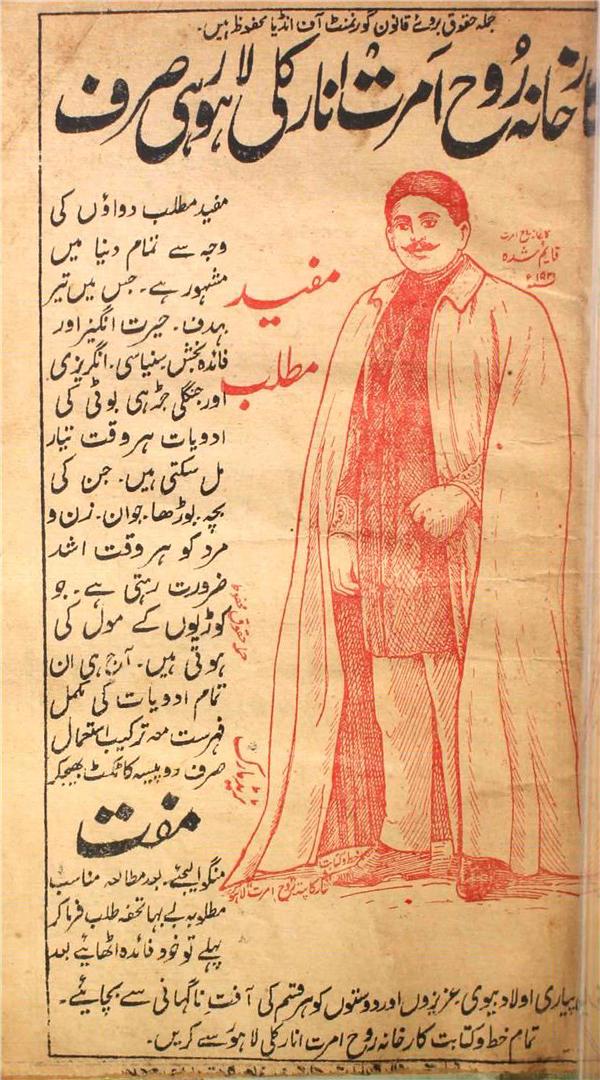 جملہ حقوق بروئے قانون گورنمنٹ آف انڈیا محفوظ ہیں۔
کارخانہ روح امرت انار کلی لاہور ہی صرف
مفید مطلب دواؤں کی
وجہ سے تمام دنیا میں
مشہور ہے۔ جس میں تیر
بہدف۔ حیرت انگیز اور
فائدہ بخش سنیاسی۔ انگریزی
اور جنگلی جڑی بوٹی کی
ادویات ہر وقت تیار
مل سکتی ہیں۔ جن کی
بچہ۔ بوڑھا۔ جوان۔ زن و
مرد کو ہر وقت اشد
ضرورت رہتی ہے۔ جو
کوڑیوں کے مول کی
ہوتی ہیں۔ آج ہی ان
تمام ادویات کی مکمل
فہرست معہ ترکیب استعمال
صرف دو پیسہ کا ٹکٹ بھیجکر
مفت
منگوا لیجئے۔ بعد مطالعہ مناسب
مطلوبہ بے بہا تحفہ طلب فرما کر
پہلے تو خود فائدہ اٹھایئے بعد
پیاری اولاد بیوی عزیزوں اور دوستوں کو ہر قسم کی آفت ناگہانی سے بچایئے۔
تمام خط و کتابت کارخانہ روح امرت انار کلی لاہور سے کریں۔
مفید
مطلب
کارخانہ روح امرت
قایم شدہ
جملہ حقوق محفوظ
ٹریڈ مارک
خط و کتابت
کا پتہ روح امرت لاہور